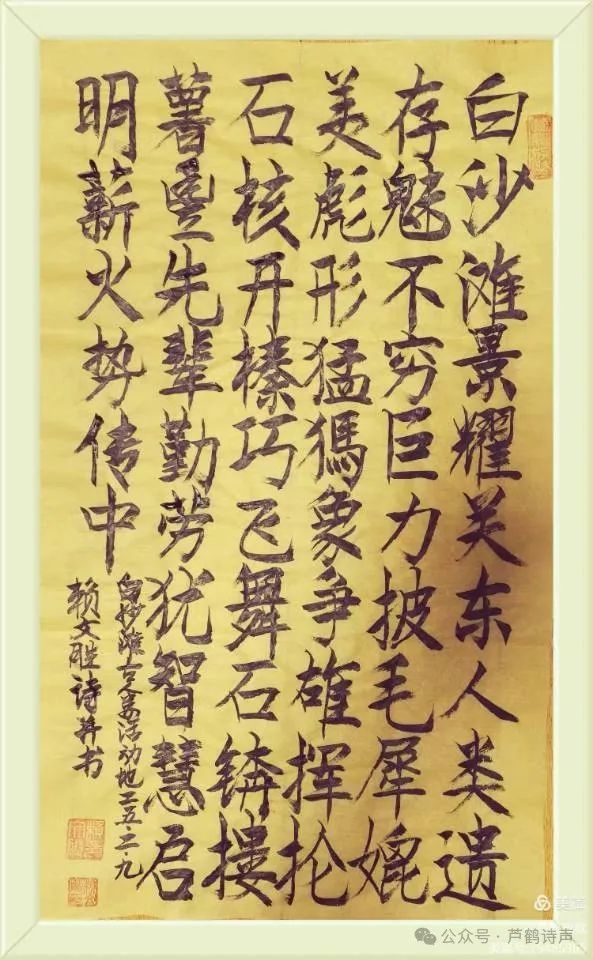 白沙滩景耀关东人类遗
存魅不穷巨力披毛犀媲
美彪形猛獁象爭雄挥抡
石核开榛巧飞舞石锛搂
薯豊先辈勤劳犹智慧启
明薪火势传中
白沙滩古人类活动地二五二九
赖文胜诗并书
公众号·芦鹤诗声